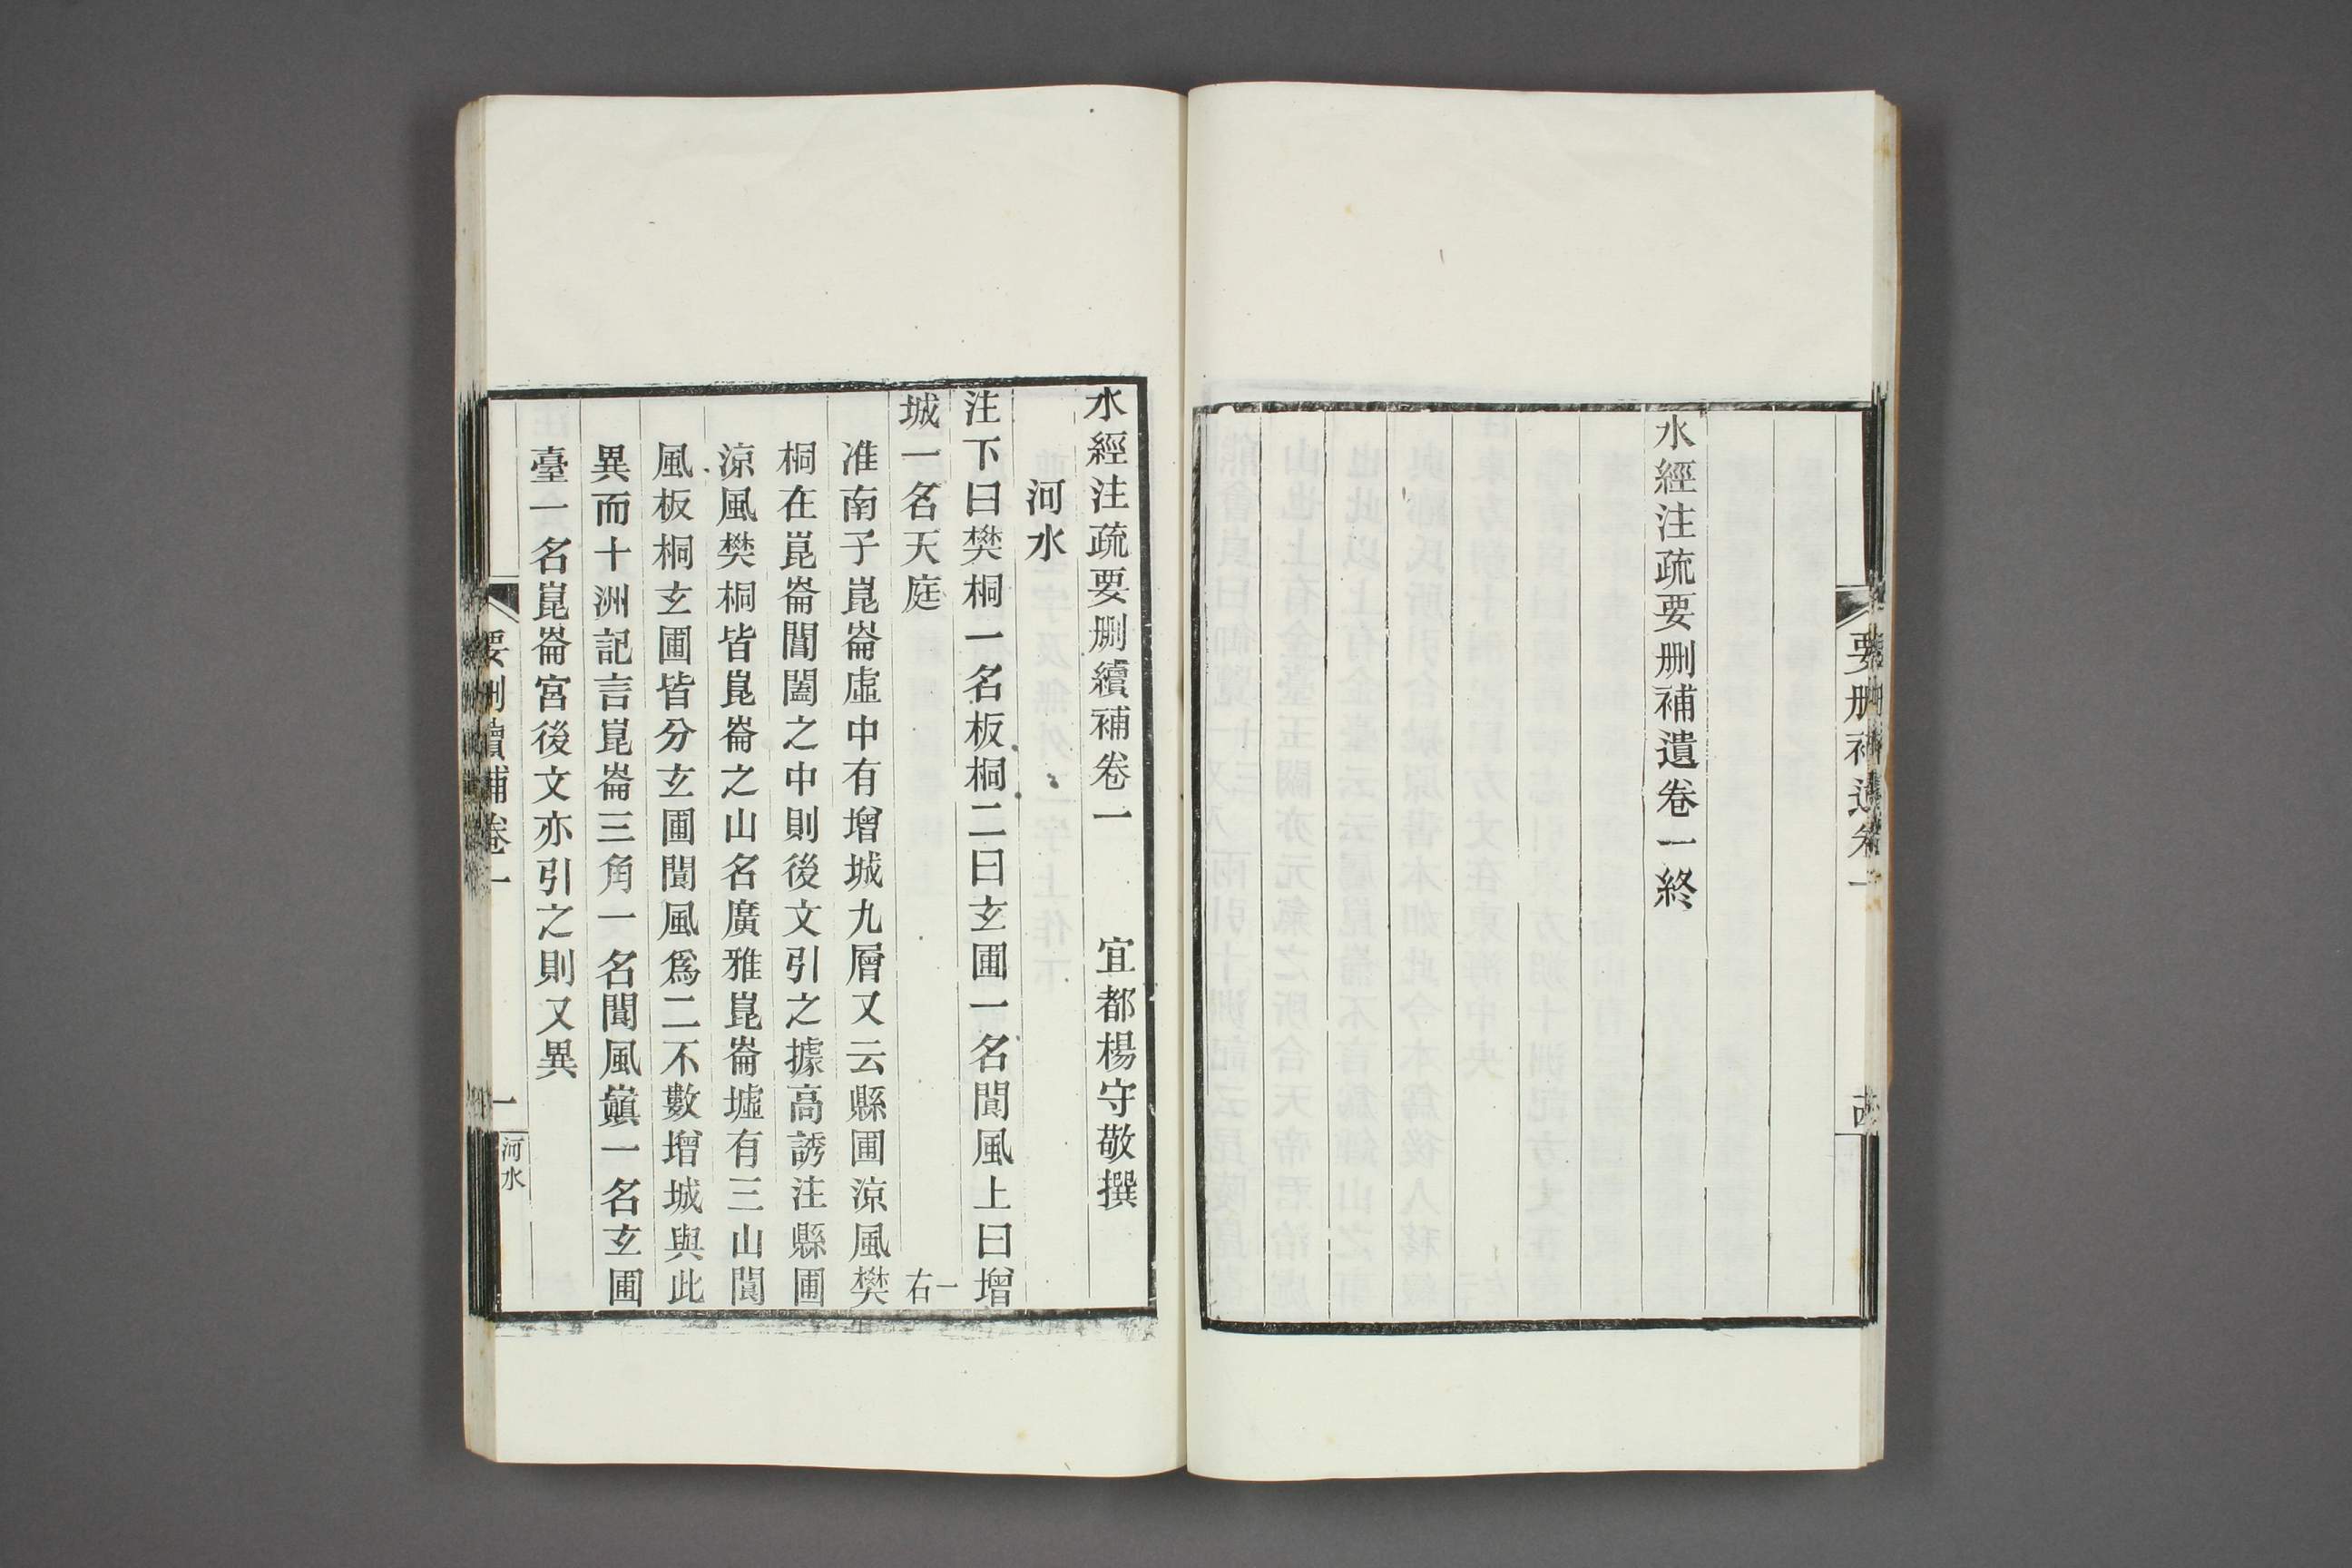 水經注疏要刪補遺卷一終
要刪補遺卷一
水經注疏要刪續補卷一　宜都楊守敬撰
河水
注下曰樊桐一名板桐二曰玄圃一名閬風上曰增
城一名天庭　一右
淮南子崑崙虛中有增城九層又云縣圃涼風樊
桐在崑崙閶闔之中則後文引之據高誘注縣圃
涼風樊桐皆崑崙之山名廣雅崑崙墟有三山閬
風板桐玄圃皆分玄圃閬風爲二不數增城與此
異而十洲記言崑崙三角一名閬風巓一名玄圃
臺一名崑崙宮後文亦引之則又異
要刪續補卷一
一
河水